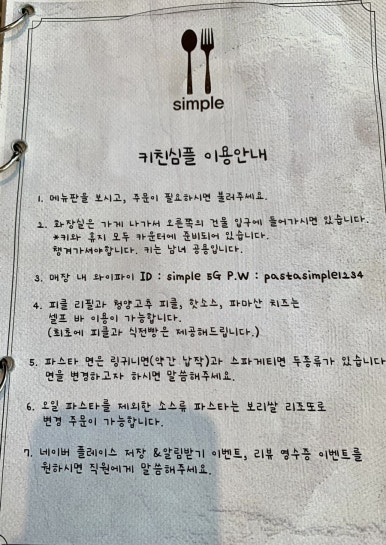 simple
키친심플 이용안내
1. 메뉴판을 보시고, 주문이 필요하시면 불러주세요.
2. 화장실은 가게 나가서 오른쪽의 건물 입구에 들어가시면 있습니다.
*키와 휴지 모두 카운터에 준비되어 있습니다.
챙겨가셔야합니다. 키는 남녀 공용입니다.
3. 매장 내 와이파이 ID : simple 5G P.W : pastasimple1234
4. 피클 리필과 청양고추 피클, 핫소스, 파마산 치즈는
셀프 바 이용이 가능합니다.
(최초에 피클과 식전빵은 제공해드립니다.)
5. 파스타 면은 링귀니면(약간 납작)과 스파게티면 두종류가 있습니다
면을 변경하고자 하시면 말씀해주세요.
6. 오일 파스타를 제외한 소스류 파스타는 보리쌀 리조또로
변경 주문이 가능합니다.
7. 네이버 플레이스 저장 &알림받기 이벤트, 리뷰 영수증 이벤트를
원하시면 직원에게 말씀해주세요.